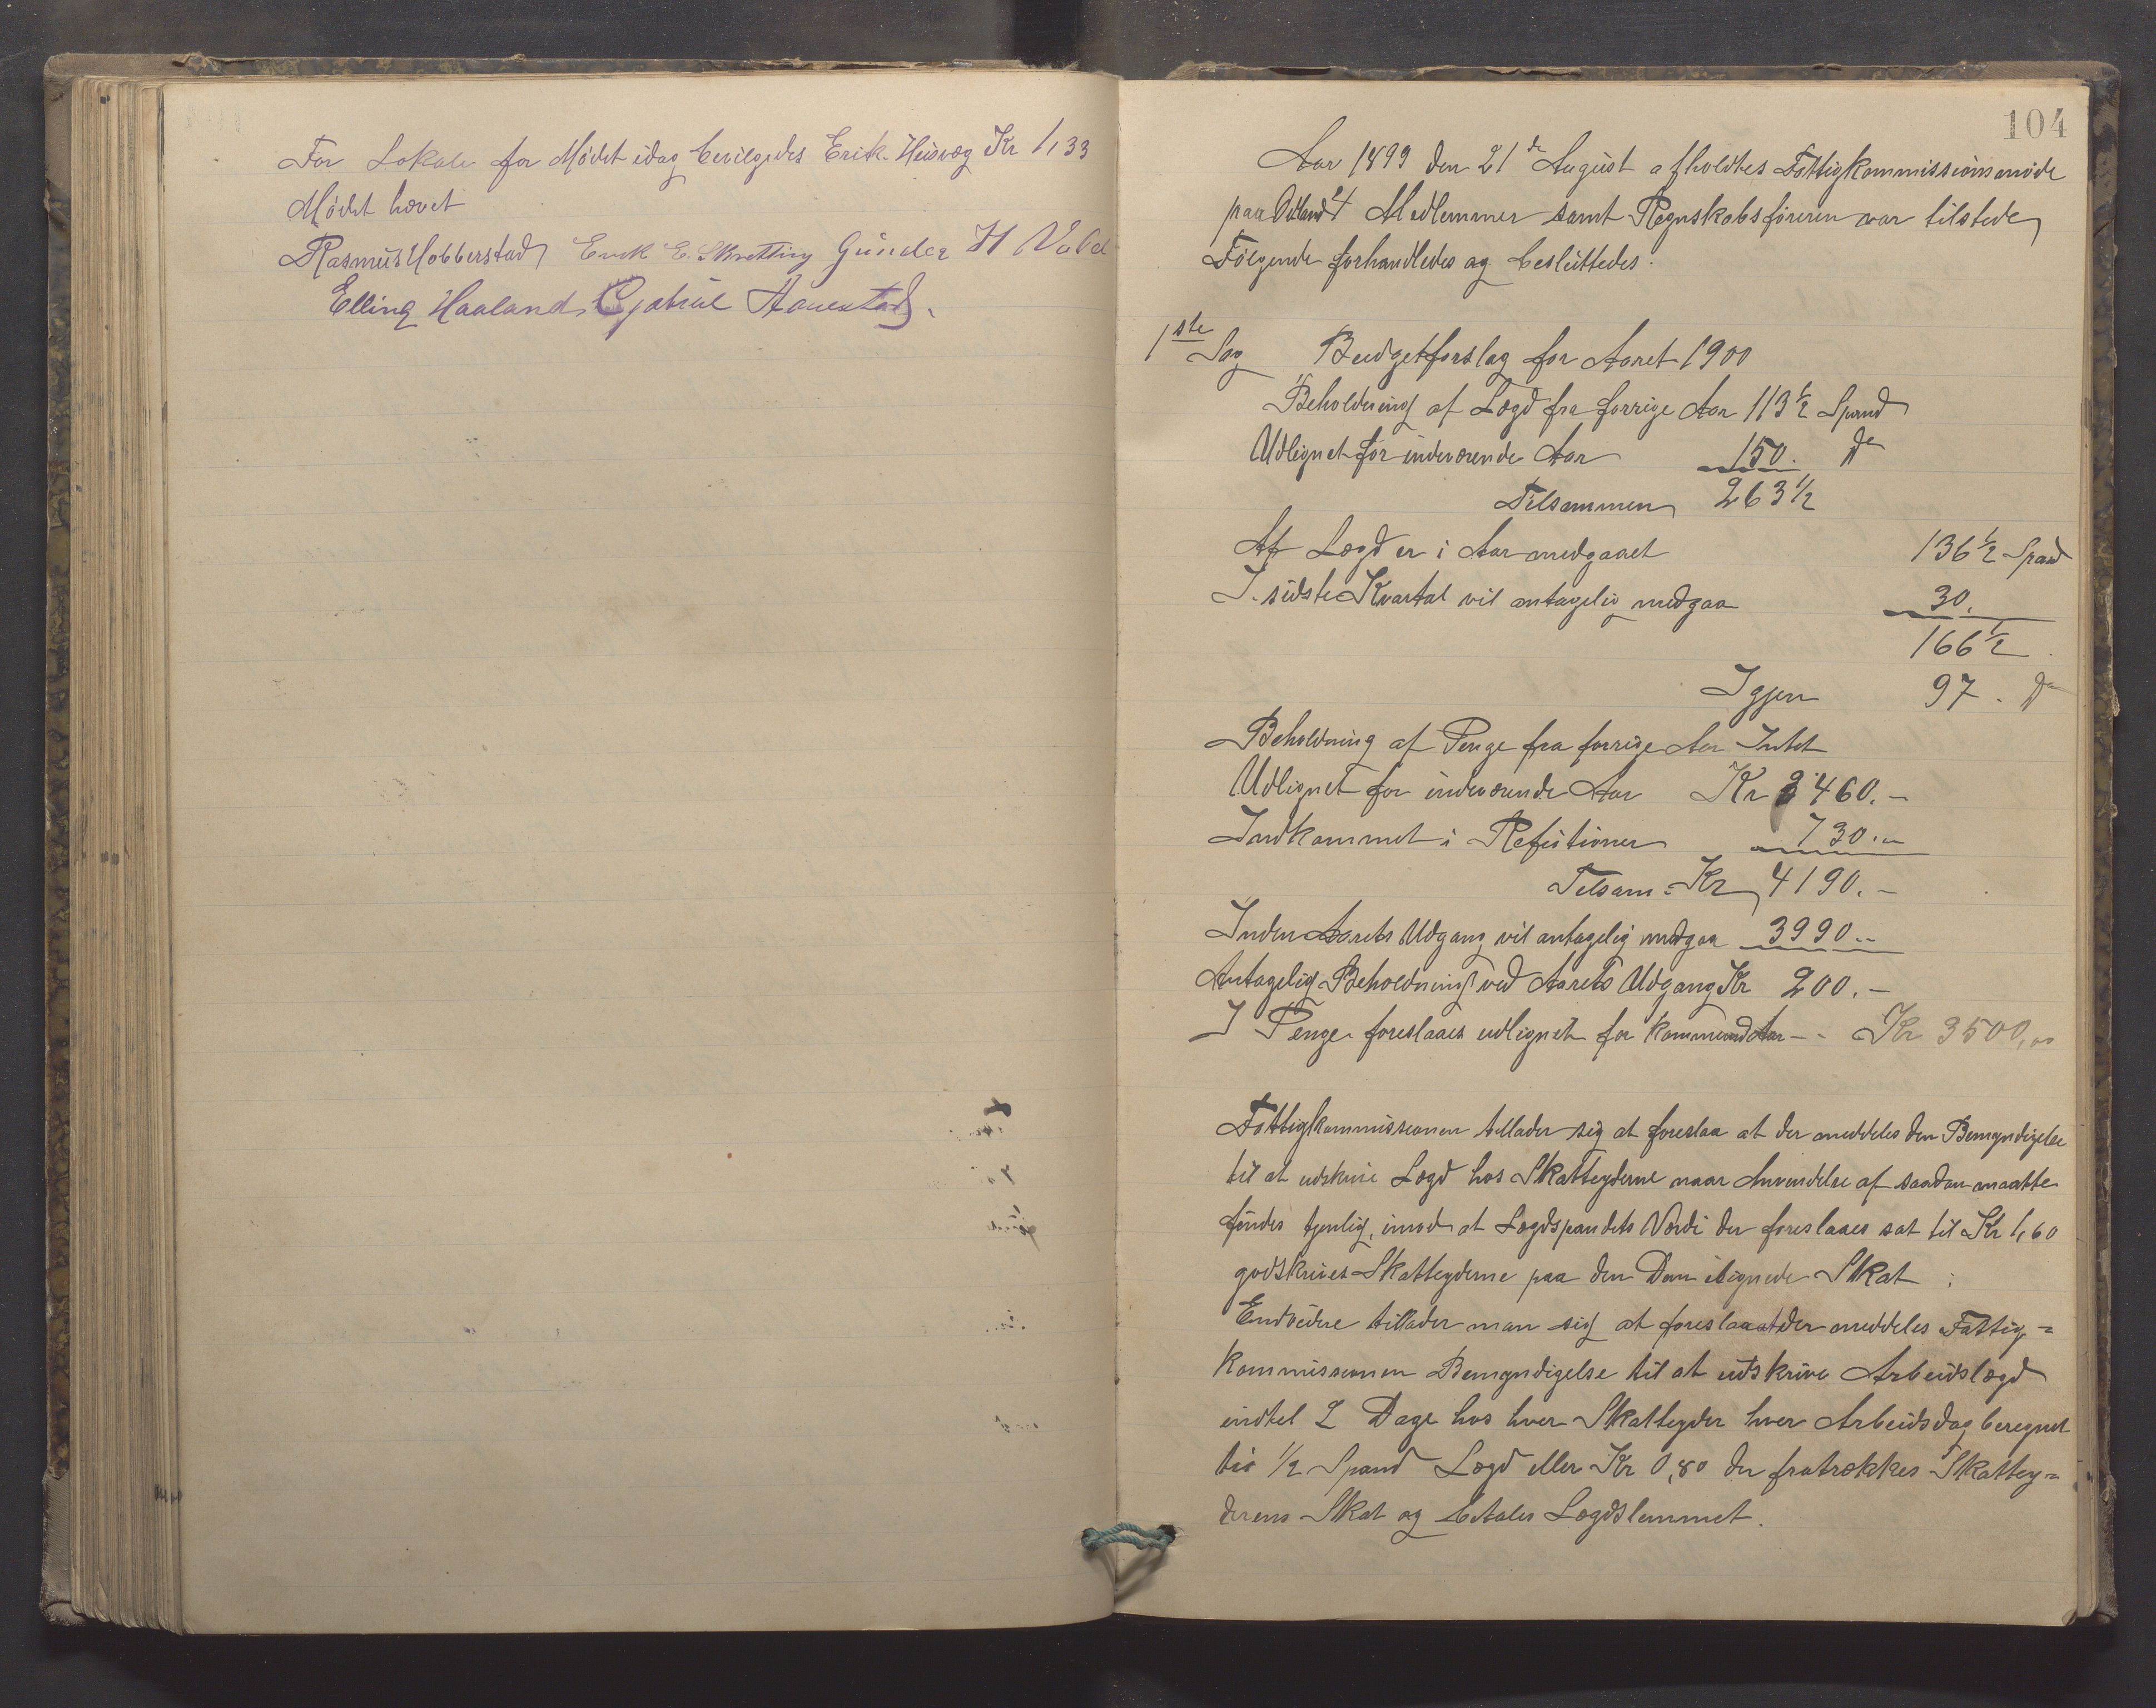 For Lokale for Mødet idag bevilgedes Erik Husvæg Kr 1,33
Mødet hævet
Rasmus Hobberstad Enok E. Skretting Gunder H
Elling Haaland Gabriel Aanestad.
104
Aar 1899 den 21de August afholdtes Fattigkommissionsmøde
paa 4 Medlemmer samt Regnskabsføreren var tilstede
Følgende forhandledes og besluttedes.
1ste Sag Budgetforslag for Aaret 1900
Beholdning af Lægd fra forrige Aar 113½ Spand
Udlignet for indeværende Aar 150. do
Tilsammen 263½
Af Lægd er i Aar medgaaet 136½ Spand
I sidste Kvartal vil antagelig medgaa 30.
166½
Igjen 97. do
Beholdning af Penge fra forrige Aar Intet
Udlignet for indeværende Aar Kr 3460.-
Indkommet i Refutioner 730.-
Tilsam = Kr 4190.-
Inden Aarets Udgang vil antagelig medgaa 3990.-
Antagelig Beholdning ved Aarets Udgang Kr 200.-
I Penge foreslaaes udlignet for kommend Aar - - Kr 3500,00
Fattigkommissionen tillader sig at foreslaa at der meddeles den Bemyndigelse
til at udskrive Lægd hos Skatteyderne naar Anvendelse af saadan maatte
findes tjenlig, imod at Lægdspandets Værdi der foreslaaes sat til Kr 1,60
godskrives Skatteyderne paa den Dem ilignede Skat
Endvidere tillader man sig at foreslaa at der meddeles Fattig=
kommissionen Bemyndigelse til at udskrive Arbeidslægd
indtil 2 Dage hos hver Skatteyder hver Arbeidsdag beregnet
til ½ Spand Lægd eller Kr 0,80 der fratrækkes Skattey=
derens Skat og betales Lægdslemmet.